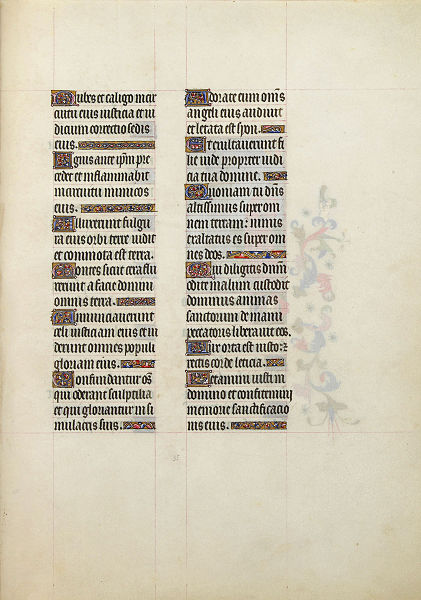 Nubes et caligo in cir
cuitu eius iusticia et iu
dicium correctio sedis
eius.
Ignis ante ip̅m pre
cedet et inflammabit
in circuitu inimicos
eius.
Illuxerunt fulgu
ra eius orbi terre vidit
et commota est terra.
Montes sicut cera flu
xerunt a facie domini
omnis terra.
Annunciaverunt
celi iusticiam eius et vi
derunt omnes populi
gloriam eius.
Confundantur oe̅s
qui adorant sculptilia
et qui gloriantur in si
mulacris suis.
Adorate eum omn̅s
angeli eius audivit
et letata est syon.
Et exultaverunt fi
lie iude propter iudi
cia tua domine.
Quoniam tu dn̅s
altissimus super om
nem terram: nimis
exaltatus es super om
nes deos.
Qui diligitis dn̅m
odite malum custodit
dominus animas
sanctorum de manu
peccatoris liberavit eos.
Lux orta est iusto: ⁊
rectis corde leticia.
Letamini iusti in
domino et confitemini
memorie sanctificacio
nis eius.